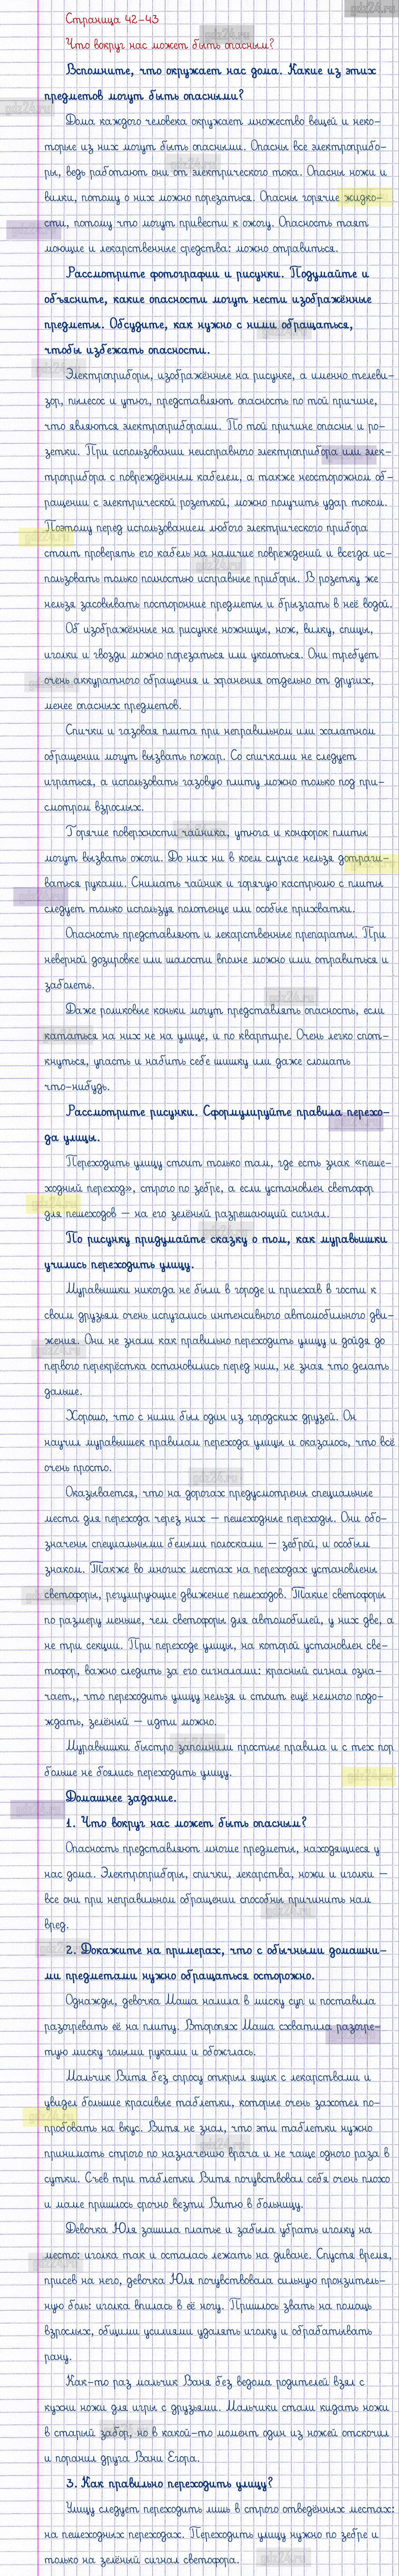 Страница 42-43
Что вокруг нас может быть опасным?
Вспомните, что окружает нас дома. Какие из этих
предметов могут быть опасными?
Дома каждого человека окружает множество вещей и неко-
торые из них могут быть опасными. Опасны все электроприбо-
ры, ведь работают они от электрического тока. Опасны ножи и
вилки, потому о них можно порезаться. Опасны горячие жидко-
сти, потому что могут привести к ожогу. Опасность таят
моющие и лекарственные средства: можно отравиться.
Рассмотрите фотографии и рисунки. Подумайте и
объясните, какие опасности могут нести изображённые
предметы. Обсудите, как нужно с ними обращаться,
чтобы избежать опасности.
Электроприборы, изображённые на рисунке, а именно телеви-
зор, пылесос и утюг, представляют опасность по той причине,
что являются электроприборами. По той причине опасны и ро-
зетки. При использовании неисправного электроприбора или элек-
троприбора с повреждённым кабелем, а также неосторожном об-
ращении с электрической розеткой, можно получить удар током.
Поэтому перед использованием любого электрического прибора
стоит проверять его кабель на наличие повреждений и всегда ис-
пользовать только полностью исправные приборы. В розетку же
нельзя засовывать посторонние предметы и брызгать в неё водой.
Об изображённые на рисунке ножницы, нож, вилку, спицы,
иголки и гвозди можно порезаться или уколоться. Они требует
очень аккуратного обращения и хранения отдельно от других,
менее опасных предметов.
Спички и газовая плита при неправильном или халатном
обращении могут вызвать пожар. Со спичками не следует
играться, а использовать газовую плиту можно только под при-
смотром взрослых.
Горячие поверхности чайника, утюга и конфорок плиты
могут вызвать ожоги. До них ни в коем случае нельзя дотраги-
ваться руками. Снимать чайник и горячую кастрюлю с плиты
следует только используя полотенце или особые прихватки.
Опасность представляют и лекарственные препараты. При
неверной дозировке или шалости вполне можно или отравиться и
заболеть.
Даже роликовые коньки могут представлять опасность, если
кататься на них не на улице, и по квартире. Очень легко спот-
кнуться, упасть и набить себе шишку или даже сломать
что-нибудь.
Рассмотрите рисунки. Сформулируйте правила перехо-
да улицы.
Переходить улицу стоит только там, где есть знак «пеше-
ходный переход», строго по зебре, а если установлен светофор
для пешеходов – на его зелёный разрешающий сигнал.
По рисунку придумайте сказку о том, как муравьишки
учились переходить улицу.
Муравьишки никогда не были в городе и приехав в гости к
своим друзьям очень испугались интенсивного автомобильного дви-
жения. Они не знали как правильно переходить улицу и дойдя до
первого перекрёстка остановились перед ним, не зная что делать
дальше.
Хорошо, что с ними был один из городских друзей. Он
научил муравьишек правилам перехода улицы и оказалось, что всё
очень просто.
Оказывается, что на дорогах предусмотрены специальные
места для перехода через них – пешеходные переходы. Они обо-
значены специальными белыми полосками – зеброй, и особым
знаком. Также во многих местах на переходах установлены
светофоры, регулирующие движение пешеходов. Такие светофоры
по размеру меньше, чем светофоры для автомобилей, у них две, а
не три секции. При переходе улицы, на которой установлен све-
тофор, важно следить за его сигналами: красный сигнал озна-
чает,, что переходить улицу нельзя и стоит ещё немного подо-
ждать, зелёный – идти можно.
Муравьишки быстро запомнили простые правила и с тех пор
больше не боялись переходить улицу.
Домашнее задание.
1. Что вокруг нас может быть опасным?
Опасность представляют многие предметы, находящиеся у
нас дома. Электроприборы, спички, лекарства, ножи и иголки –
все они при неправильном обращении способны причинить нам
вред.
2. Докажите на примерах, что с обычными домашни-
ми предметами нужно обращаться осторожно.
Однажды, девочка Маша налила в миску суп и поставила
разогревать её на плиту. Второпях Маша схватила разогре-
тую миску голыми руками и обожглась.
Мальчик Витя без спросу открыл ящик с лекарствами и
увидел большие красивые таблетки, которые очень захотел по-
пробовать на вкус. Витя не знал, что эти таблетки нужно
принимать строго по назначению врача и не чаще одного раза в
сутки. Съев три таблетки Витя почувствовал себя очень плохо
и маме пришлось срочно везти Витю в больницу.
Девочка Юля зашила платье и забыла убрать иголку на
место: иголка так и осталась лежать на диване. Спустя время,
присев на него, девочка Юля почувствовала сильную пронзитель-
ную боль: иголка впилась в её ногу. Пришлось звать на помощь
взрослых, общими усилиями удалять иголку и обрабатывать
рану.
Как-то раз мальчик Ваня без ведома родителей взял с
кухни ножи для игры с друзьями. Мальчики стали кидать ножи
в старый забор, но в какой-то момент один из ножей отскочил
и поранил друга Вани Егора.
3. Как правильно переходить улицу?
Улицу следует переходить лишь в строго отведённых местах:
на пешеходных переходах. Переходить улицу нужно по зебре и
только на зелёный сигнал светофора.